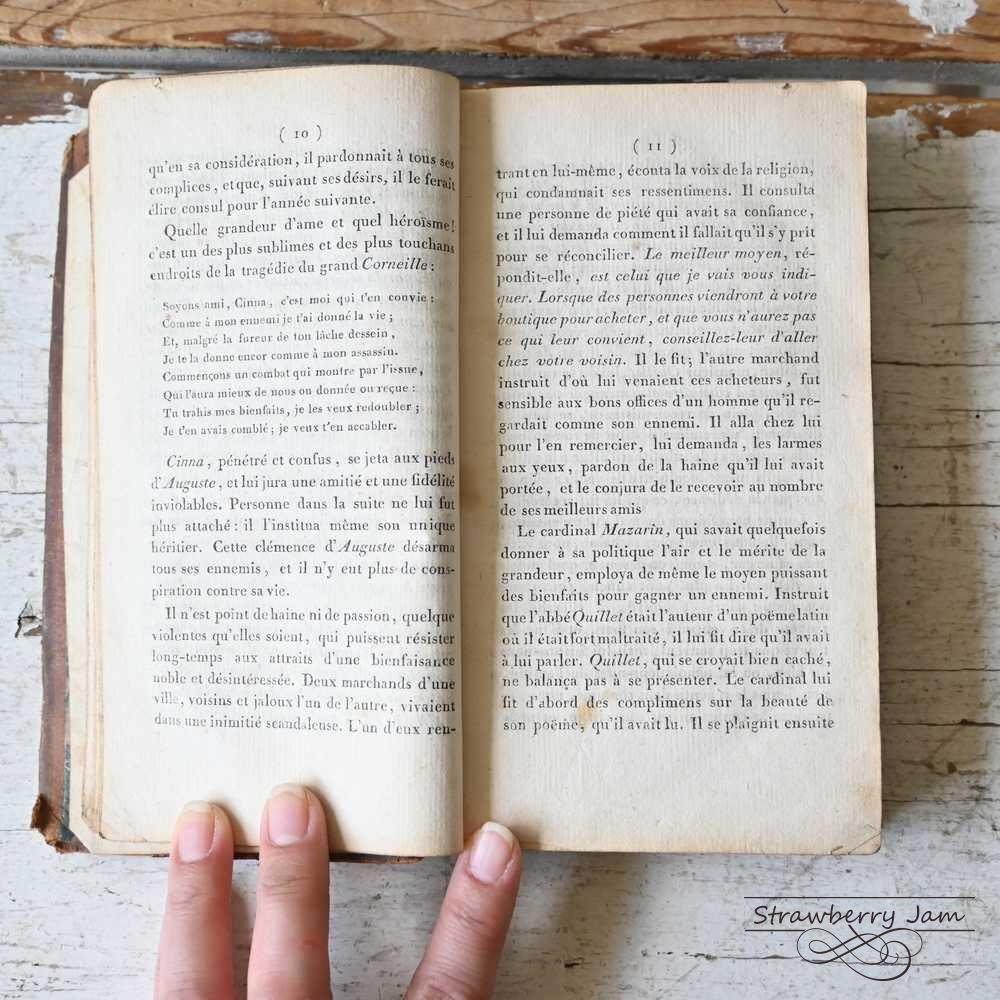 ( 10 )
qu'en sa considération, il pardonnait à tous ses
complices, et que, suivant ses désirs, il le ferait
élire consul pour l'année suivante.
Quelle grandeur d'ame et quel héroïsme!
c'est un des plus sublimes et des plus touchans
endroits de la tragédie du grand Corneille :
Soyons ami, Cinna, c'est moi qui t'en convie :
Comme à mon ennemi je t'ai donné la vie ;
Et, malgré la fureur de ton lâche dessein,
Je te la donne encor comme à mon assassin.
Commençons un combat qui montre par l'issue,
Qui l'aura mieux de nous ou donnée ou reçue :
Tu trahis mes bienfaits, je les veux redoubler ;
Je t'en avais comblé ; je veux t'en accabler.
Cinna, pénétré et confus, se jeta aux pieds
d'Auguste, et lui jura une amitié et une fidélité
inviolables. Personne dans la suite ne lui fut
plus attaché : il l'institua même son unique
héritier. Cette clémence d'Auguste désarma
tous ses ennemis, et il n'y eut plus de cons-
piration contre sa vie.
Il n'est point de haine ni de passion, quelque
violentes qu'elles soient, qui puissent résister
long-temps aux attraits d'une bienfaisance
noble et désintéressée. Deux marchands d'une
ville, voisins et jaloux l'un de l'autre, vivaient
dans une inimitié scandaleuse. L'un d'eux ren-
( 11 )
trant en lui-même, écouta la voix de la religion,
qui condamnait ses ressentimens. Il consulta
une personne de piété qui avait sa confiance,
et il lui demanda comment il fallait qu'il s'y prit
pour se réconcilier. Le meilleur moyen, ré-
pondit-elle, est celui que je vais vous indi-
quer. Lorsque des personnes viendront à votre
boutique pour acheter, et que vous n'aurez pas
ce qui leur convient, conseillez-leur d'aller
chez votre voisin. Il le fit ; l'autre marchand
instruit d'où lui venaient ces acheteurs, fut
sensible aux bons offices d'un homme qu'il re-
gardait comme son ennemi. Il alla chez lui
pour l'en remercier, lui demanda, les larmes
aux yeux, pardon de la haine qu'il lui avait
portée, et le conjura de le recevoir au nombre
de ses meilleurs amis
Le cardinal Mazarin, qui savait quelquefois
donner à sa politique l'air et le mérite de la
grandeur, employa de même le moyen puissant
des bienfaits pour gagner un ennemi. Instruit
que l'abbé Quillet était l'auteur d'un poëme latin
où il était fort maltraité, il lui fit dire qu'il avait
à lui parler. Quillet, qui se croyait bien caché,
ne balança pas à se présenter. Le cardinal lui
fit d'abord des complimens sur la beauté de
son poëme, qu'il avait lu. Il se plaignit ensuite
Strawberry Jam